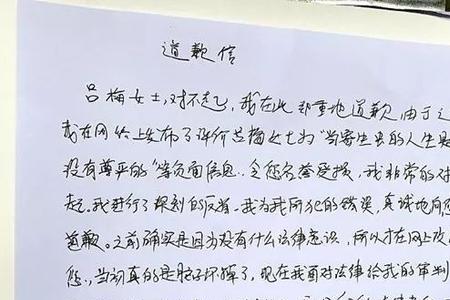 道歉信
吕梅女士,对不起,我在此郑重地道歉,由于之
我在网络上发布了评价吕梅女士为“当寄生虫的人生是
没有尊严的”等负面信息..令您名誉受损,我非常的对
起.我进行了深刻的反省.我为我所犯的错误,真诚地向您
道歉。之前确实是因为没有什么法律意识,所以才在网上攻
您.,当初真的是脑子坏掉了,现在我面对法律给我的审判